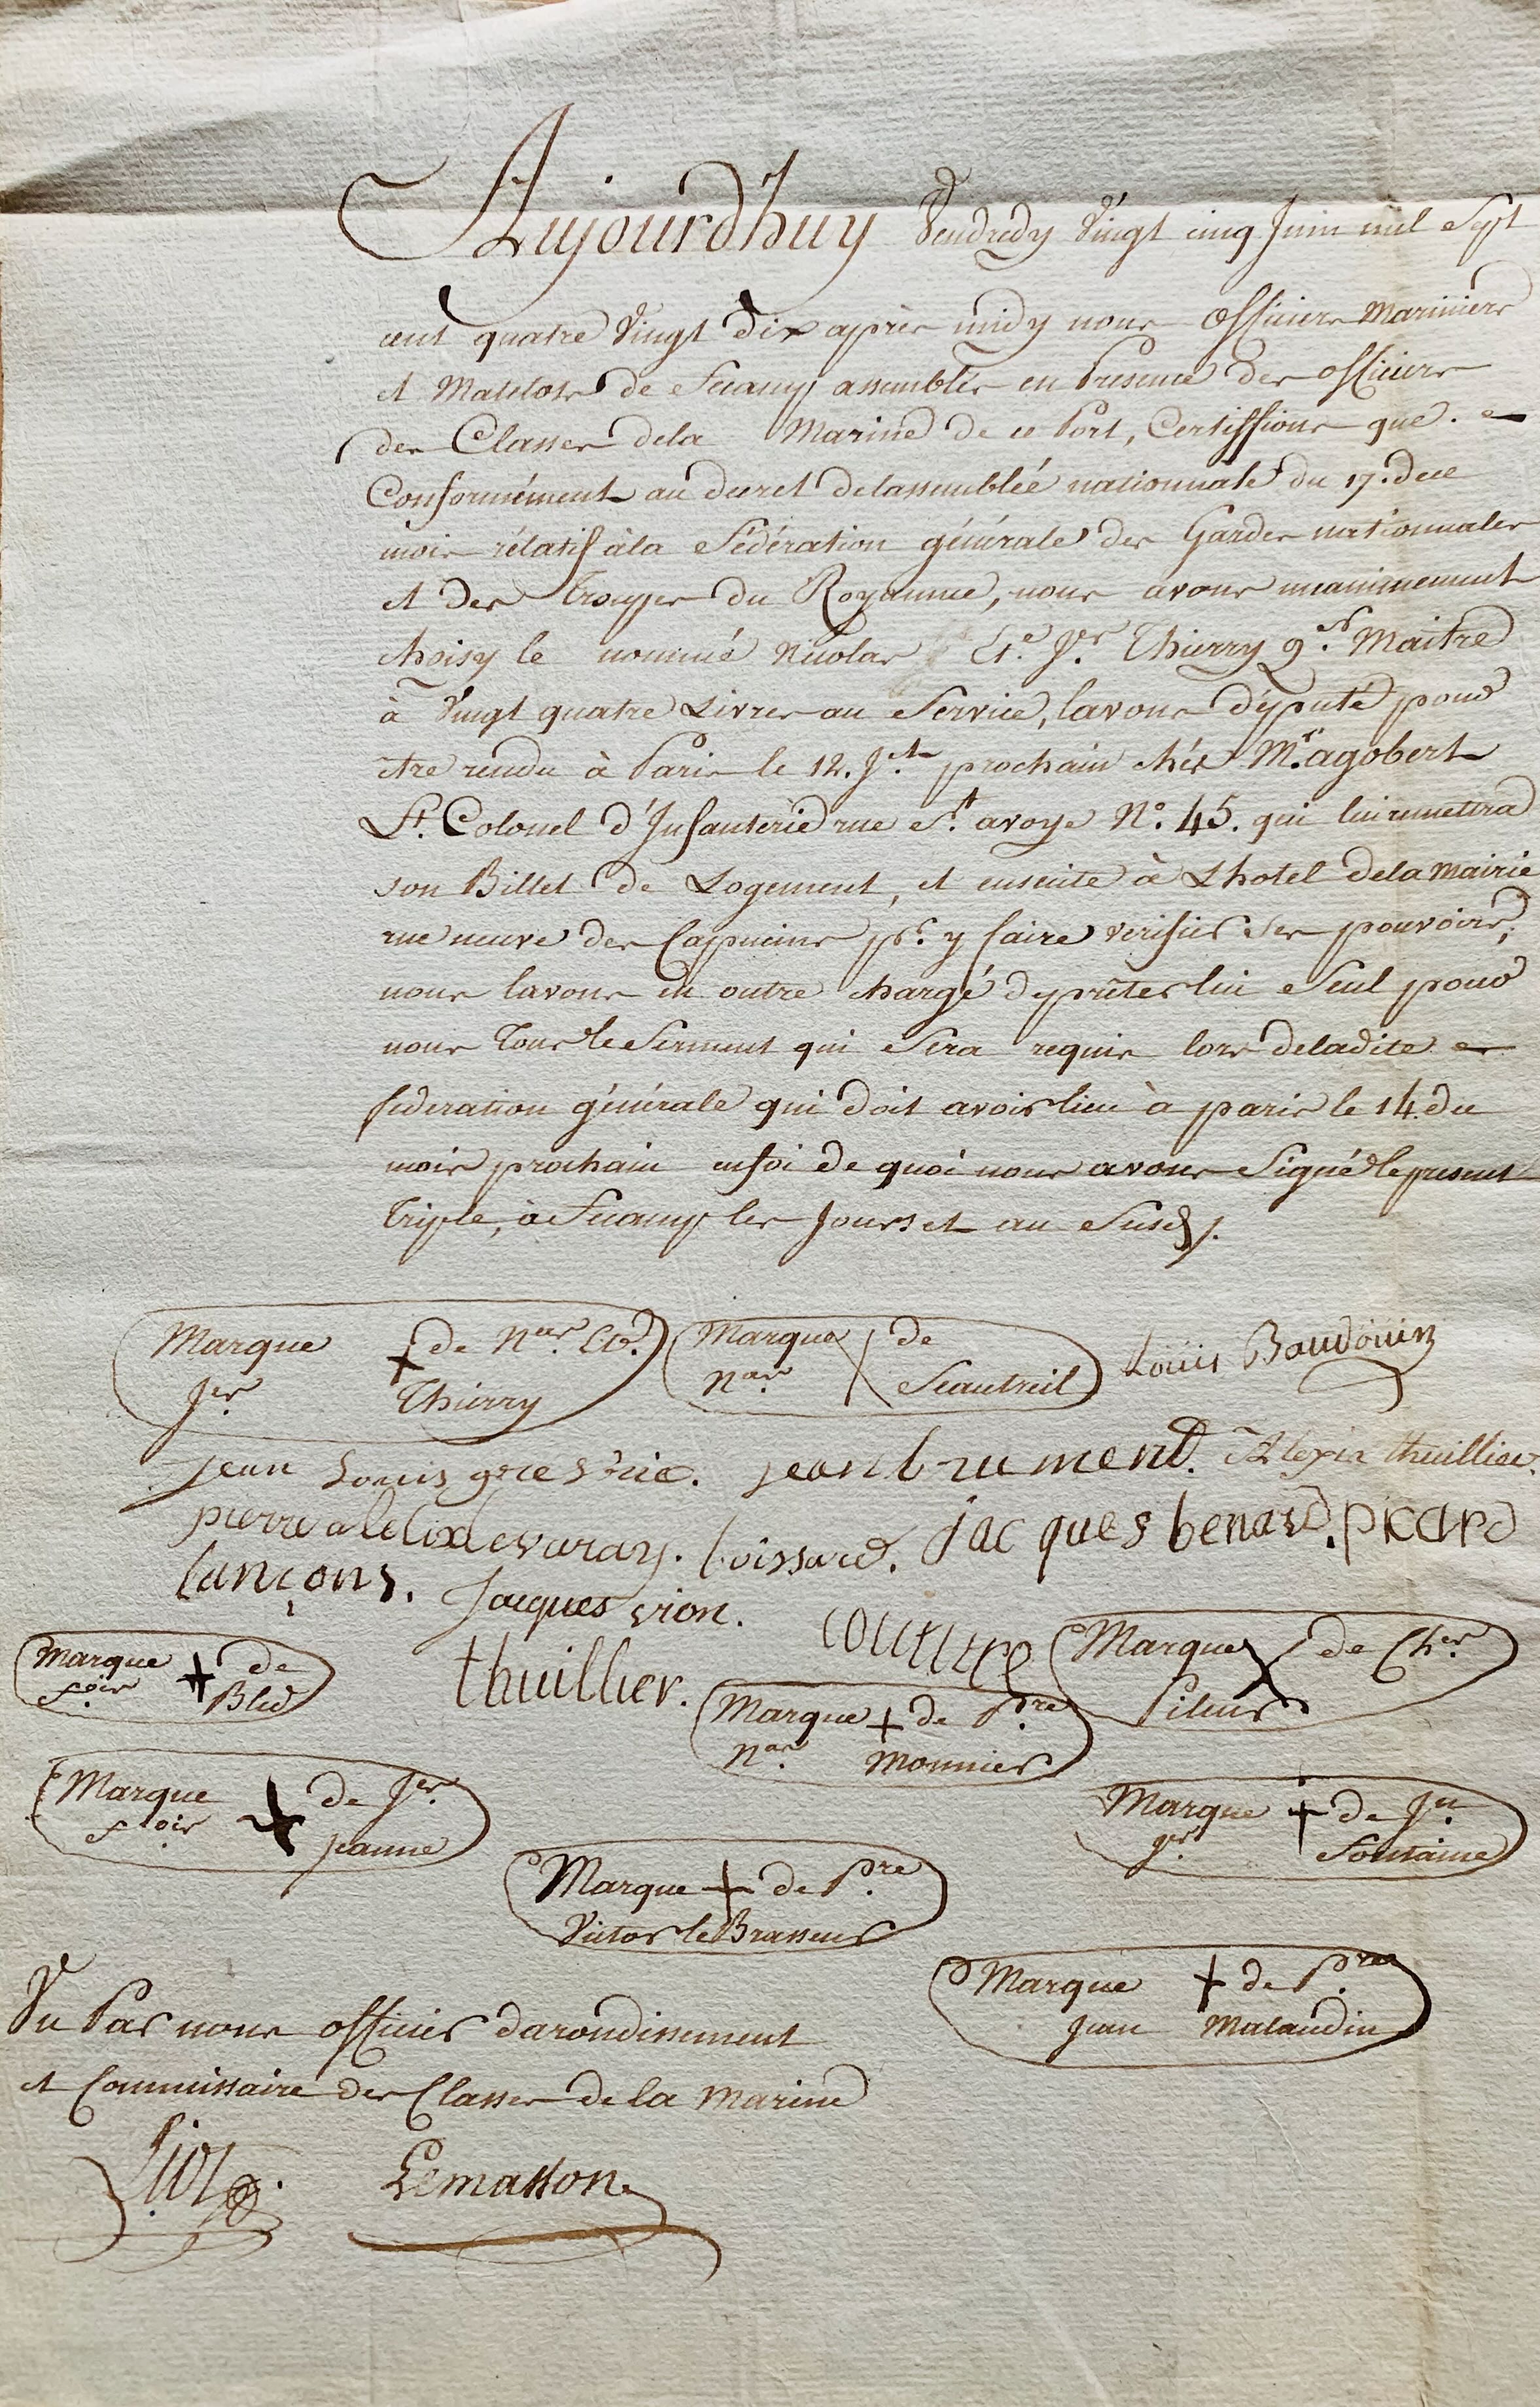 Aujourd'huy Vendredy Vingt cinq Juin mil Sept
cent quatre Vingt Dix après midy nous Officiers Mariniers
et Matelots de Fecamp assemblés en Presence des officiers
des Classes dela Marine de ce Port, Certiffions que
Conformément au decret delassemblée nationnale du 17. de ce
mois rélatif àla Fédération générale des Gardes nationnales
et Des Troupes Du Royaume, nous avons unanimement
choisy le nommé Nicolas Et.e J.es Thierry Maitre
à Vingt quatre Livres au Service, lavons députe pour
être rendu à Paris le 12. J.et prochain chés M.r agobert
Lt. Colonel d'Infanterie rue St. avoye N.o 45. qui lui remettra
son Billet de Logement, et ensuite à Lhotel dela Mairie
rue neuve des Capucins pr. y faire verifier ses pouvoirs,
nous lavons en outre chargé dy prêter lui Seul pour
nous Tous le Serment qui Sera requis lors deladite
federation générale qui doit avoir lieu à paris le 14. du
mois prochain enfoi de quoi nous avons Signé le present
Triple, à Fecamp les Jours et an Susd.
Marque + de N.as Et.
J.es Thierry
Marque X de
N.as Seautreil
Loüis Baudoüin
jean Louis
jean brument. Alexis thuillier.
pierre alelix levaray. boissard. Jacques benard. picard
lançons. Jacques vion.
couture
Marque + de
F.ois Bled
thuillier.
Marque X de Ch.es
Pileur
Marque + de P.re
N.as Monnier
Marque + de J.es
F.ois Jeanne
Marque + de J.n
J.es Fontaine
Marque + de P.re
Victor le Brasseur
Marque + de P.re
Jean Malandin
Vu Par nous officier darondissement
et Commissaire des Classes de la Marine
Lemasson